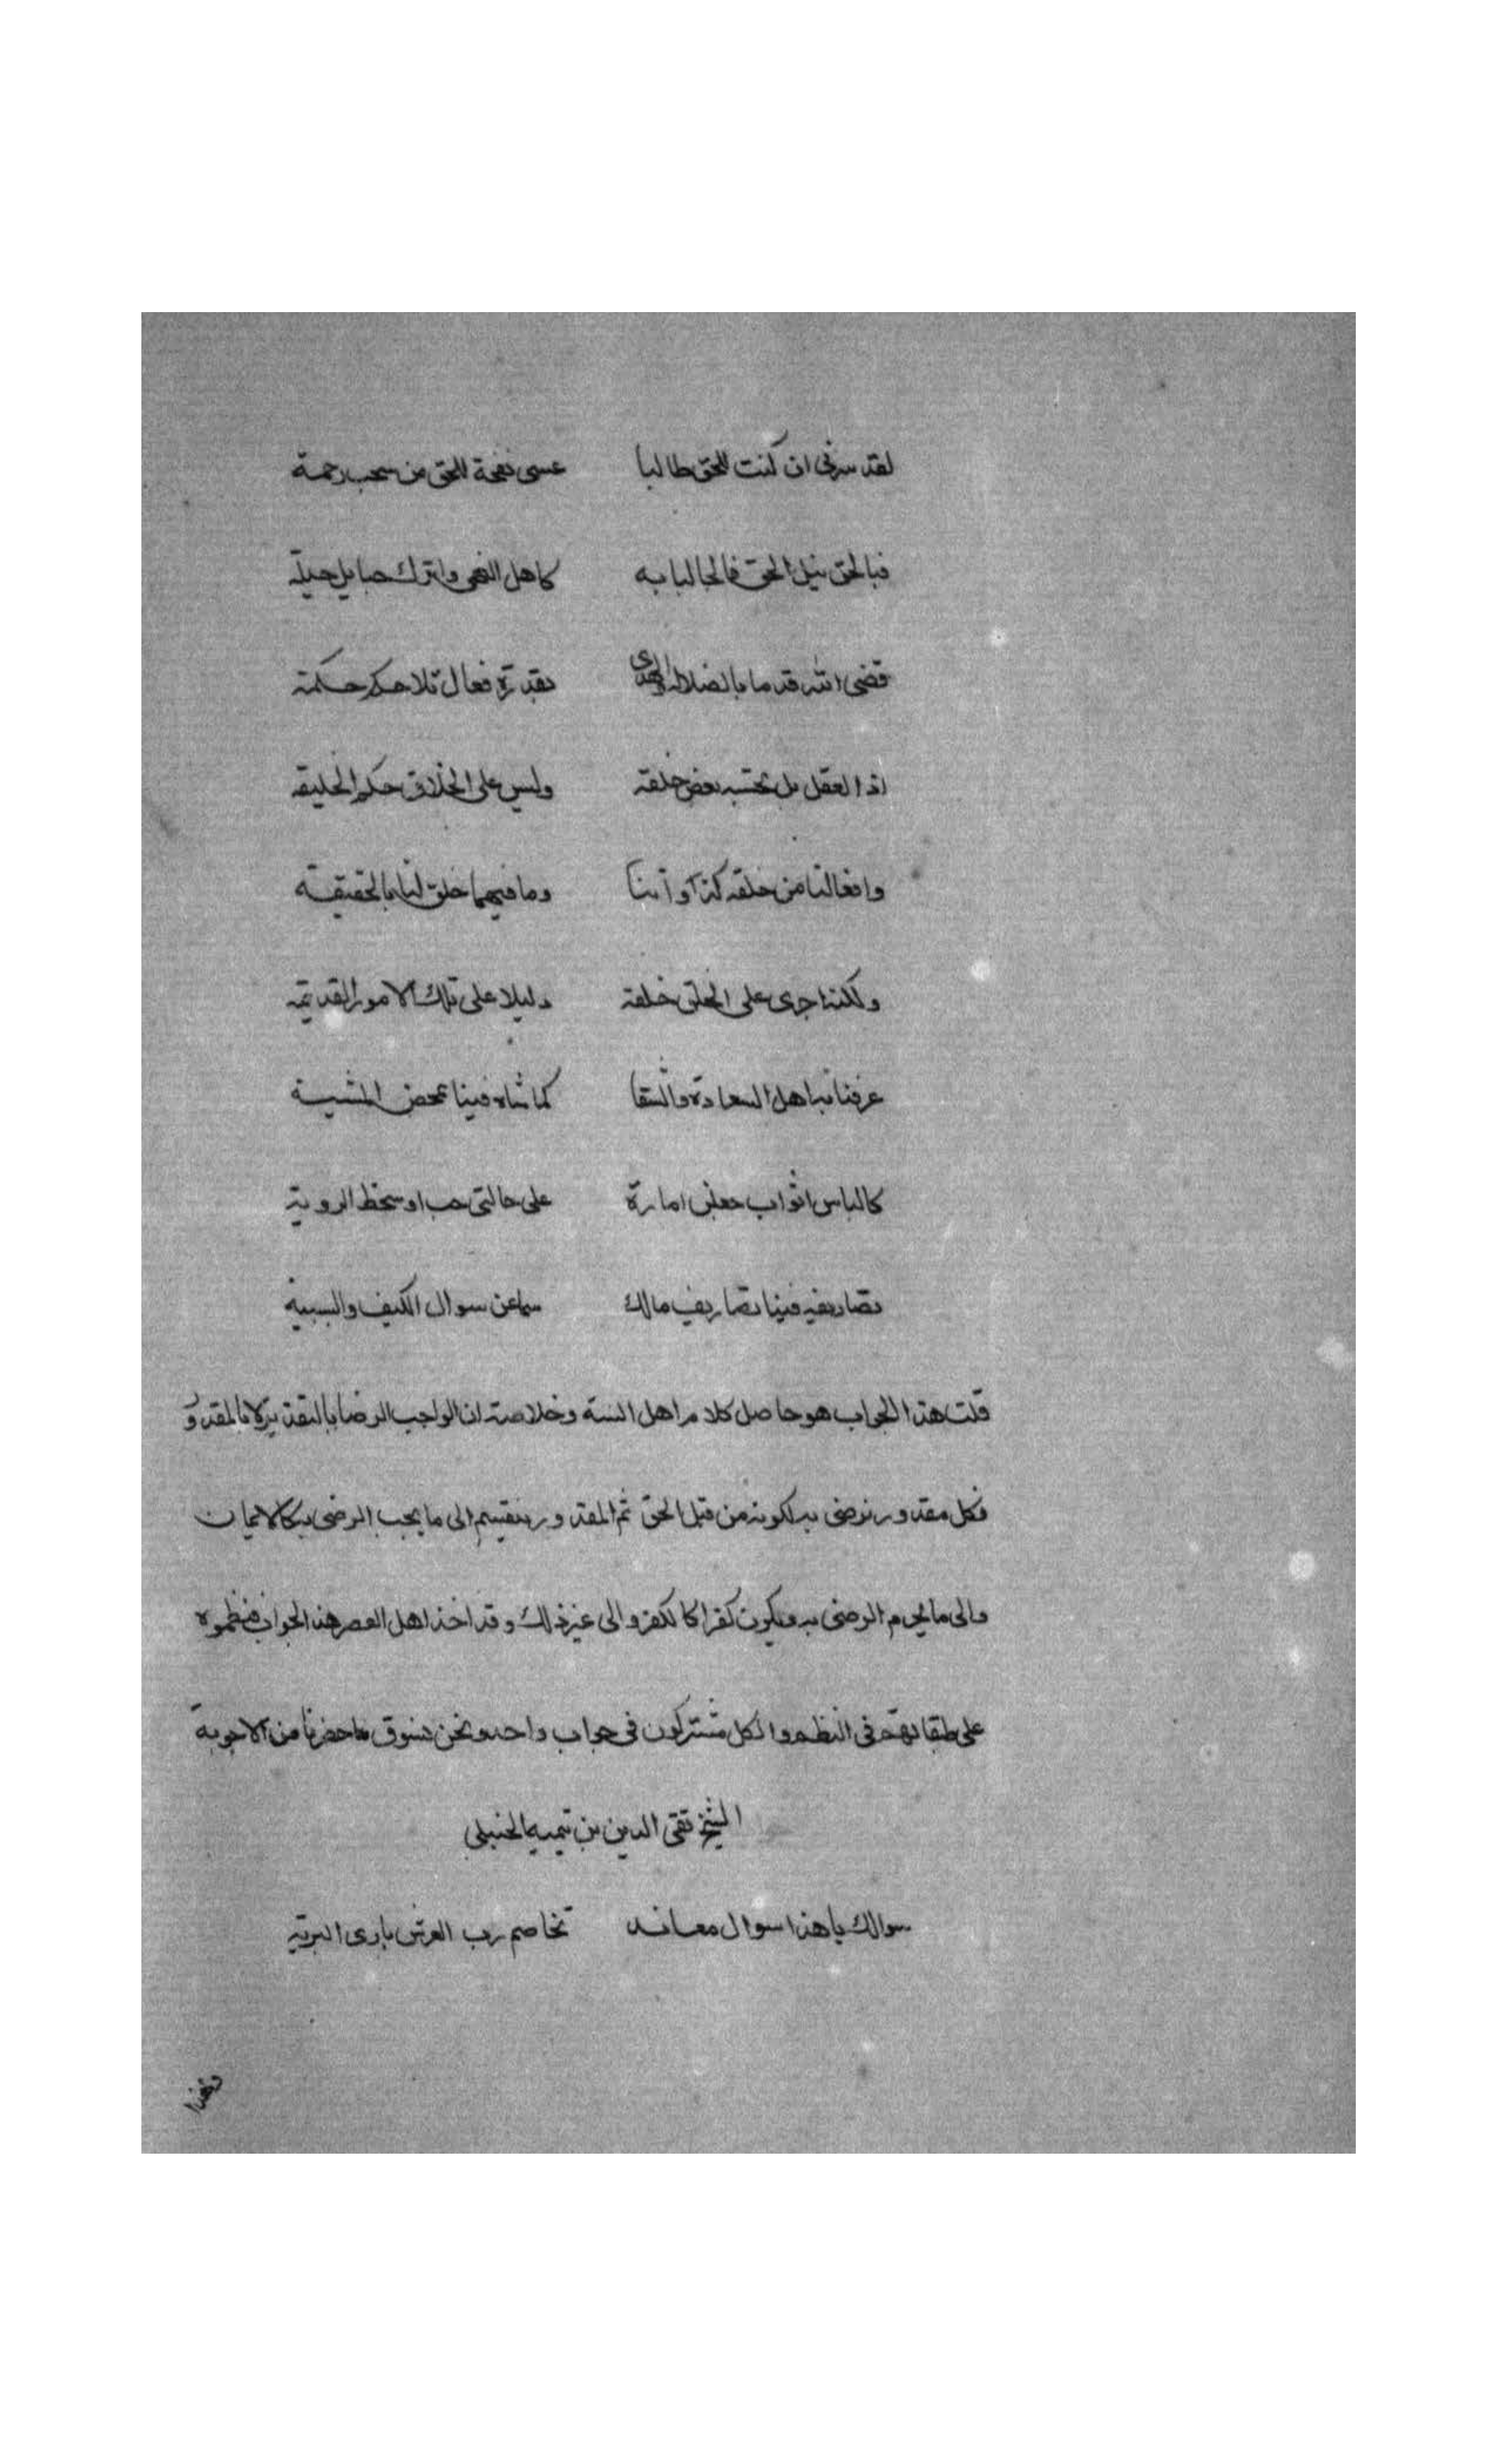 لقد سرني ان كنت للحق طالبا عسى نفحة للحق من سحب رحمة
فبالحق نيل الحق فالجا لبابه كاهل النهى واترك حبايل حيلة
قضى الله قدما بالضلالة الهدى بقدرة فعال بلا حكم حكمة
اذ العقل بل تحسينه بعض خلقه وليس على الخلاق حكم الخليقه
وافعالنا من خلقه كذواتنا وما فيهما خلق لنا بالحقيقة
ولكنه اجرى على الخلق خلقه دليلا على تلك الامور القديمة
عرفنا به اهل السعادة والشقا كما شاء فينا بمحض المشيية
كالباس اثواب جعلن امارة على حالتي حب او سخط الروية
تصاريفه فينا تصاريف مالك سما عن سوال الكيف والسببية
قلت هذا الجواب هو حاصل كلام اهل السنة وخلاصته ان الواجب الرضا بالتقدير لا بالمقدور
فكل مقدور نرضى به لكونه من قبل الحق ثم المقدور ينقسم الى ما يجب الرضى به كالايمان
والى ما يحرم الرضى به ويكون كفرا كالكفر والى غير ذلك وقد اخذ اهل العصر هذا الجواب فنظموه
على طبقاتهم في النظم والكل مشتركون في جواب واحد ونحن نسوق ما حضرنا من الاجوبة
الشيخ تقى الدين بن تيميه الحنبلى
سوالك يا هذا سوال معاند تخاصم رب العرش بارى البرية